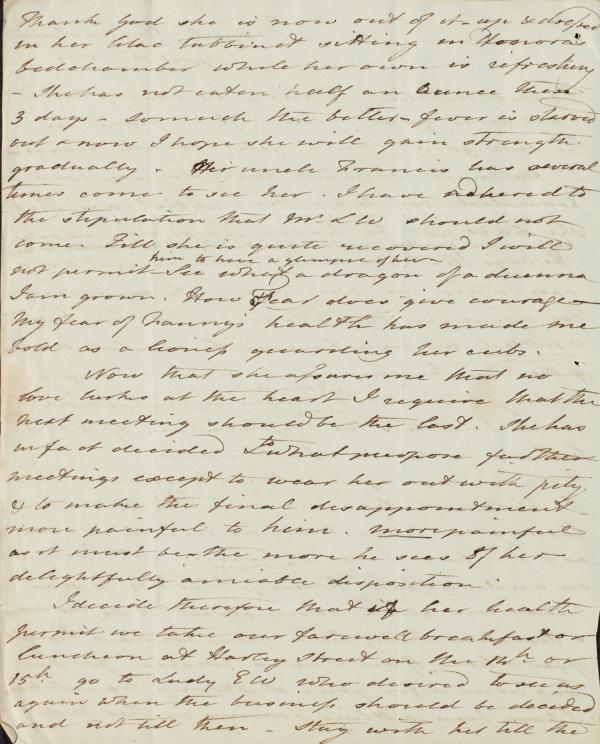 thank God she is now out of it - up & dressed
in her lilac tabbinet sitting in Honora's
bedchamber while her own is refreshing
- She has not eaten half an ounce these
3 days - so much the better - fever is starved
out & now I hope she will gain strength
gradually. Her uncle Francis has several
times come to see her. I have adhered to
the stipulation that Mr LW should not
come. Till she is quite recovered I will
him to have a glimpse of her
not permit See what a dragon of a duenna
I am grown. How Fear does give courage -
My fear of Fanny's health has made me
bold as a lioness guarding her cubs.
Now that she assures me that no
love lurks at the heart I require that the
next meeting should be the last. She has
in fact decided & to what purpose further
meetings except to wear her out with pity
& to make the final disappointment
more painful to him. more painful
as it must be the more he sees of her
delightfully amiable disposition.
I decide therefore that if her health
permit we take our farewell breakfast or
luncheon at Harley Street on the 14th or
15th go to Lady EW who desired to see us
again when the business should be decided
and not till then - Stay with her till the